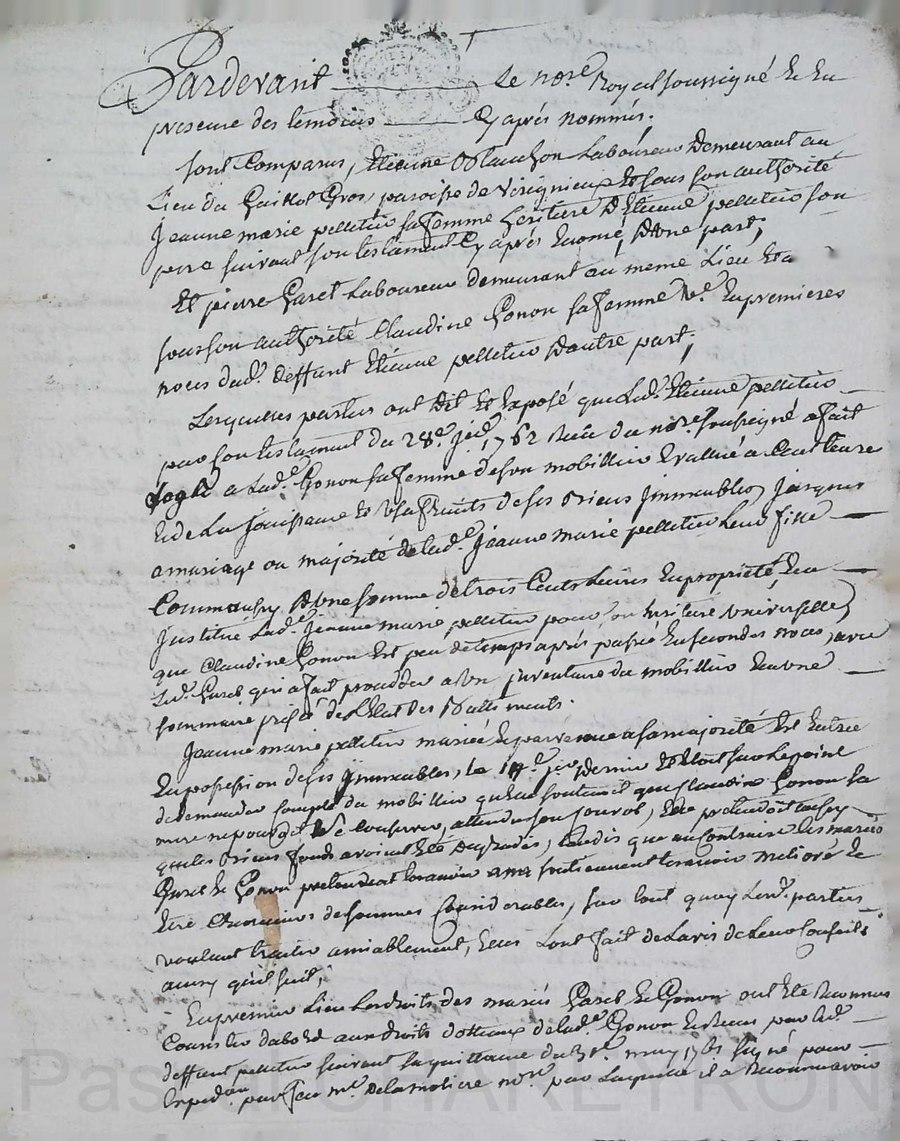 Pardevant Le nore Royal soussigné Et En
presence des temoins Cy aprés nommés.
sont Comparus, Etienne Blanchon Laboureur Demeurant au
Lieu du Gros, paroisse de Verignieux Et sous son authorité
Jeanne marie pelletier sa femme heritiere D'Etienne pelletier son
pere suivant son testament Cy aprés Enoncé, D'une part,
Et pierre Garet Laboureur demeurant au meme Lieu Et a
sous son authorité Claudine Gonon sa femme ve. En premieres
noces dud. deffunt Etienne pelletier D'autre part,
Lesquelles parties ont dit Et Exposé que Led. Etienne pelletier
par son testament du 28e. 1762 Reçu du nore. soussigné a fait
Legs a Lad.e Gonon sa femme de son mobillier Evallué a Cent Livres
Et de La Jouissance Et Usufruits de ses Biens Immeubles Jusques
a mariage ou majorité de Lad.e Jeanne marie pelletier Leur fille
Comm'aussy D'une somme de trois Cents Livres En propriété, En a
Institué Lad.e Jeanne marie pelletier pour son heritiere Universelle,
que Claudine Gonon Est peu de temps aprés passée En secondes noces, avec
Led. Garet qui a fait proceder a Un Inventaire du mobillier Et a Une
sommaire prisée de L'Etat des Batiments.
Jeanne marie pelletier mariée Et parvenue a sa majorité Est Entrée
En possession de ses Immeubles, Le dernier Et Etoit sur Le point
de demander Compte du mobillier qu'Elle soutenoit que Claudine Gonon sa
mere ne pouvoit Conserver, attendu son Convol, Elle pretendoit aussy
que Les Biens fonds avoient Eté Degradés, tandis que au Contraire Les mariés
Garet Et Gonon pretendoient Les avoir Melioré Et
Etre Creanciers de sommes Considerables, sur tout quoy Les d. parties
voulant traiter amiablement, Elles L'ont fait de L'avis de Leurs Conseils
ainsy qu'il suit,
En premier Lieu Les droits des mariés Garet Et Gonon ont Eté Reconnus
Consister d'abord aux droits dotaux de Lad.e Gonon Et Reçus par Led.
deffunt pelletier suivant sa quittance du may 1761 signé pour
Expedon. par feu me. Delamoliere nore. par Laquelle il a Reconnu avoir
Pascal CHAREYRON